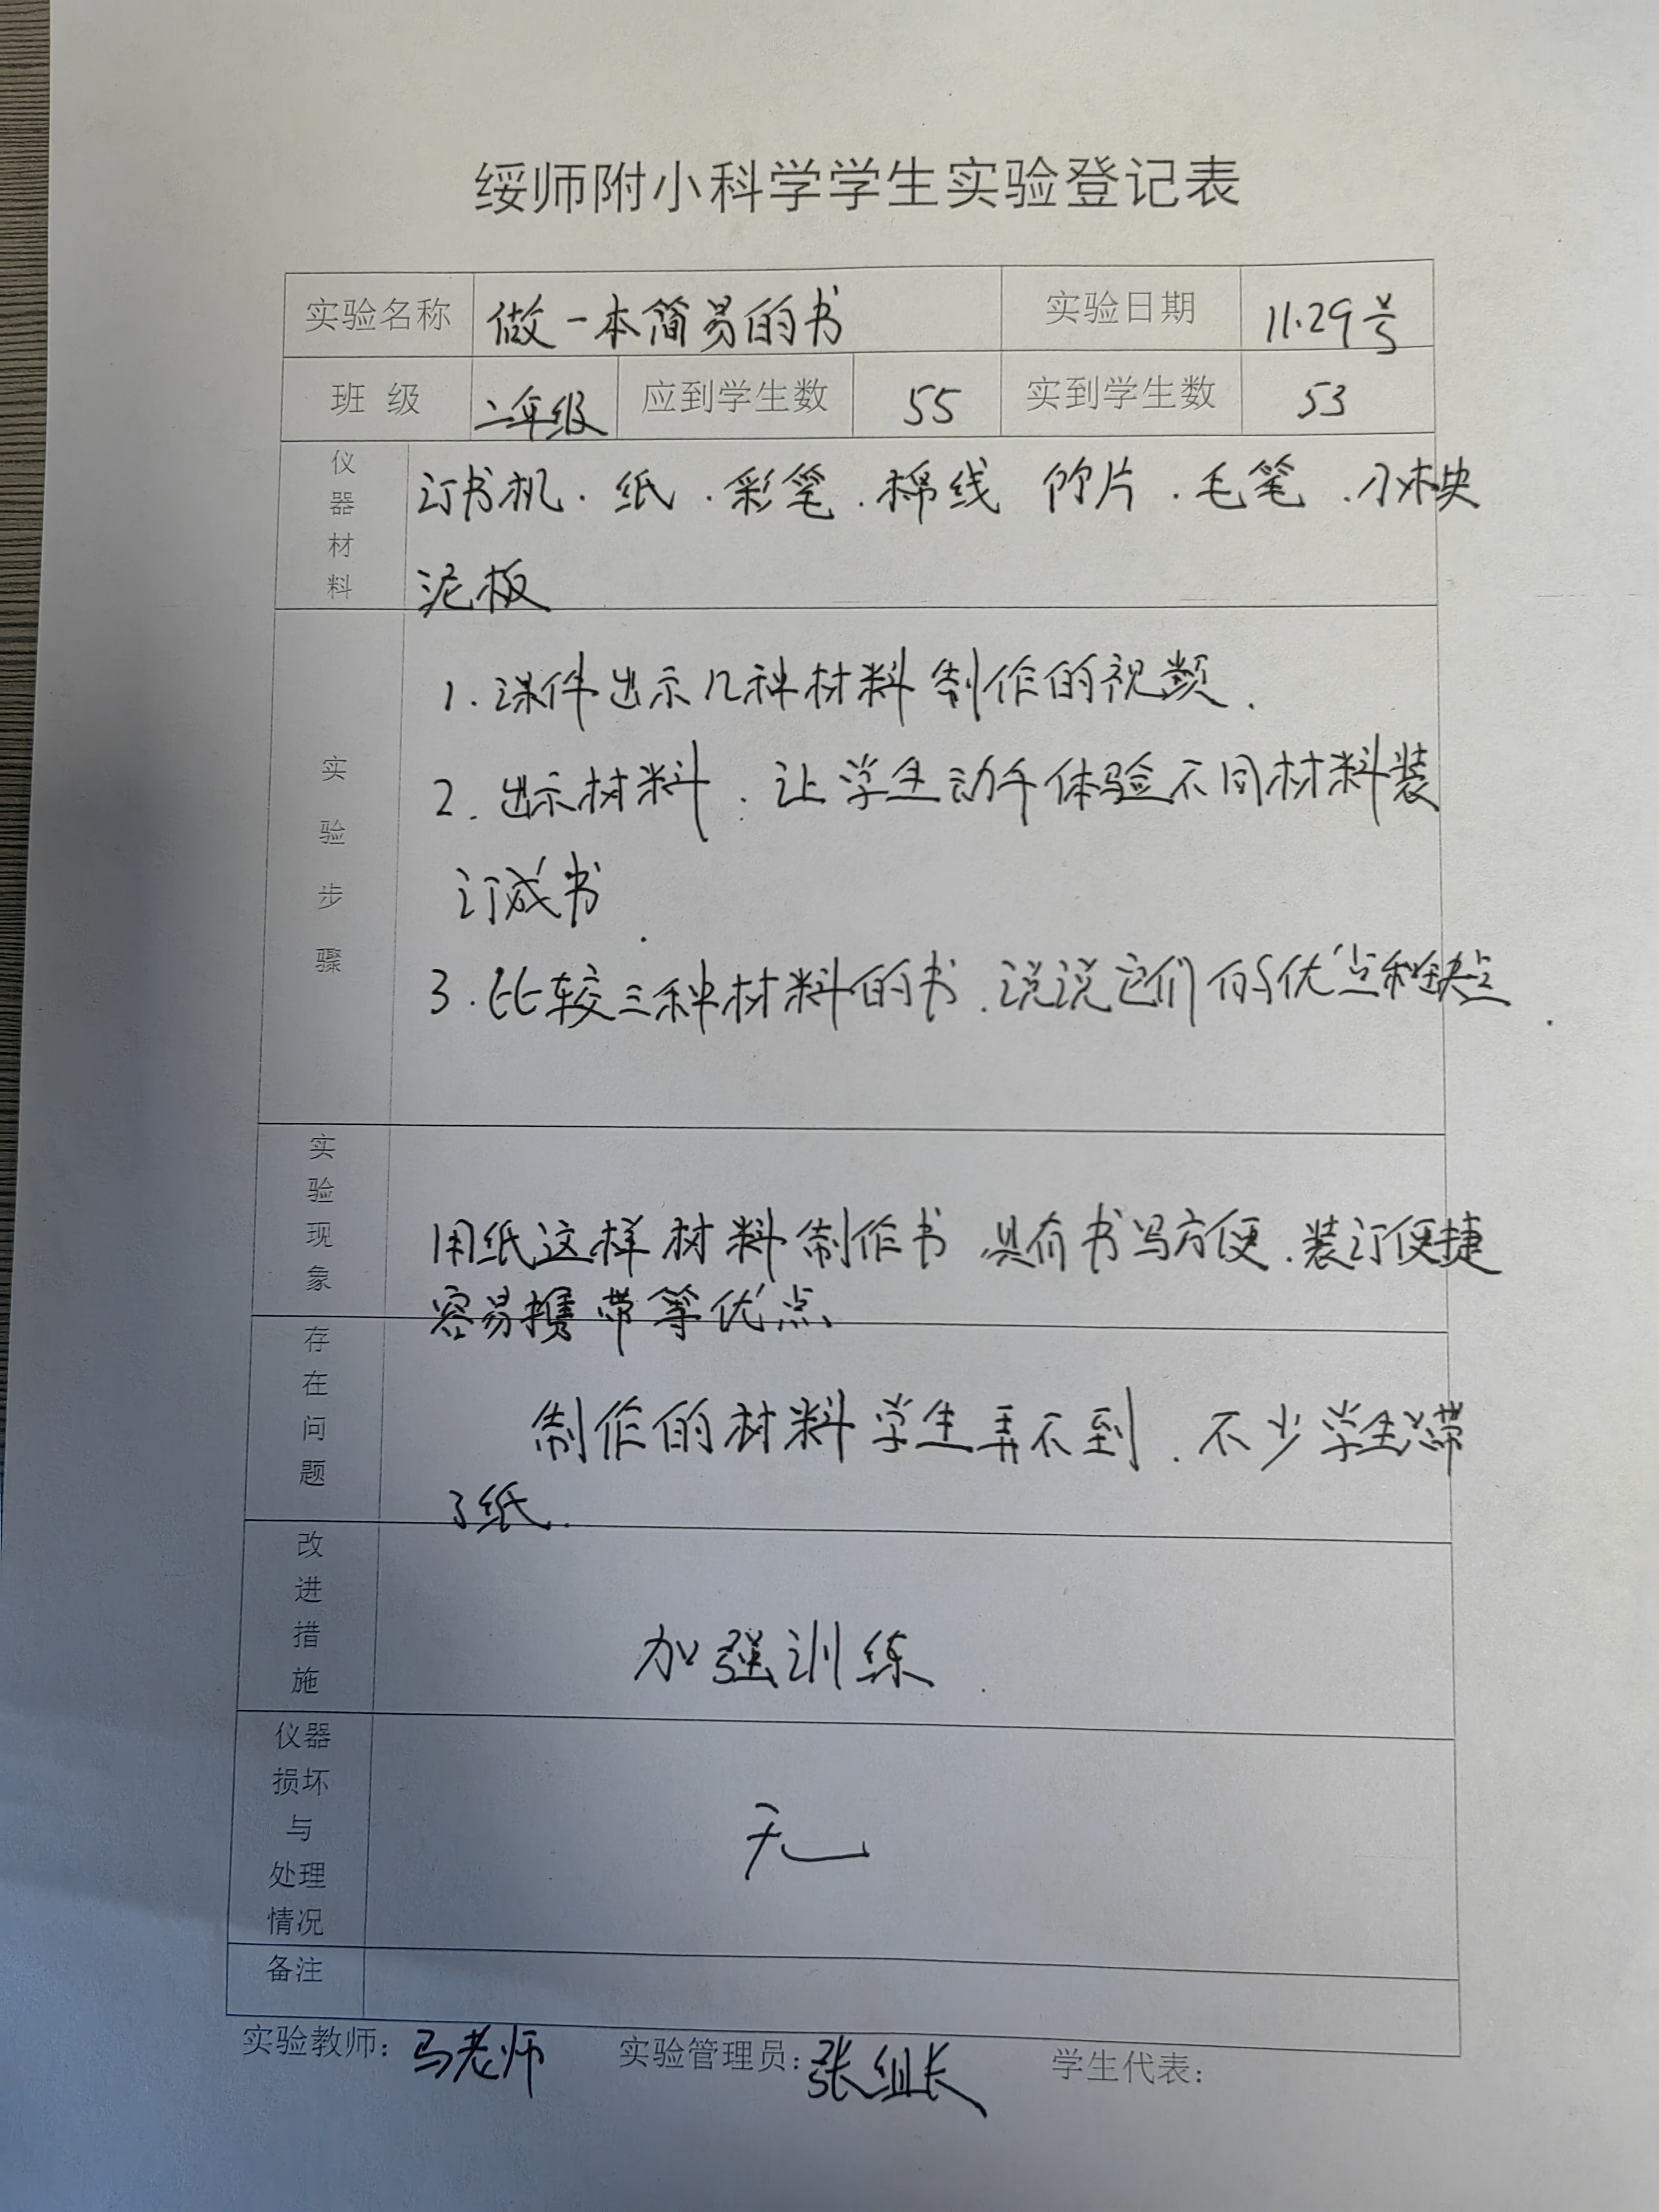 绥师附小科学学生实验登记表
实验名称 做一本简易的书 实验日期 11.29号
班 级 二年级 应到学生数 55 实到学生数 53
仪器材料 订书机.纸.彩笔.棉线 竹片.毛笔.小木块
泥板
实验步骤
1.课件出示几种材料制作的视频.
2.出示材料.让学生动手体验不同材料装
订成书.
3.比较三种材料的书.说说它们的优点和缺点.
实验现象
用纸这样材料制作书 具有书写方便.装订便捷
容易携带等优点、
存在问题
制作的材料学生弄不到.不少学生带
了纸.
改进措施
加强训练.
仪器
损坏
与
处理
情况
无
备注
实验教师：马老师 实验管理员：张组长 学生代表：